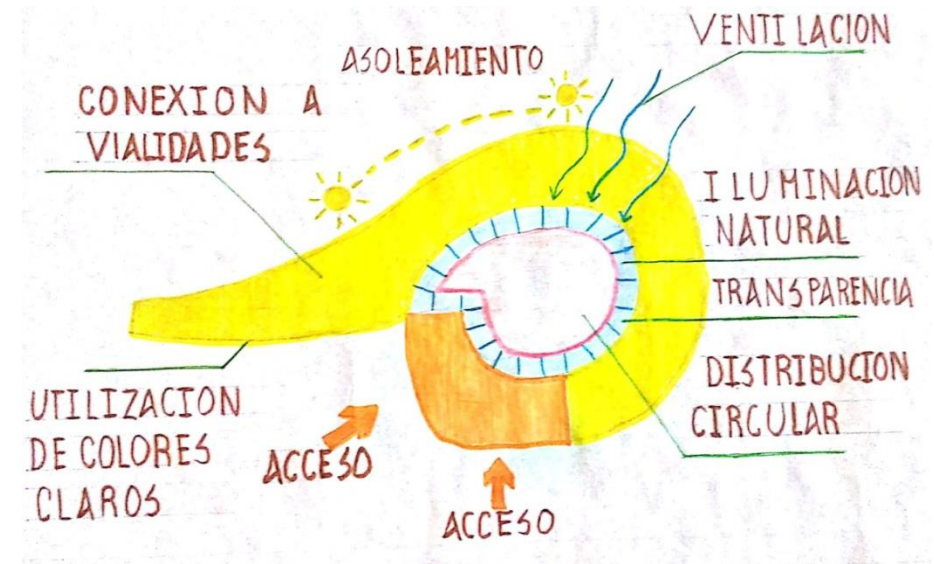 VENTILACION
ASOLEAMIENTO
CONEXION A
VIALIDADES
ILUMINACION
NATURAL
TRANSPARENCIA
DISTRIBUCION
CIRCULAR
UTILIZACION
DE COLORES
CLAROS
ACCESO
ACCESO